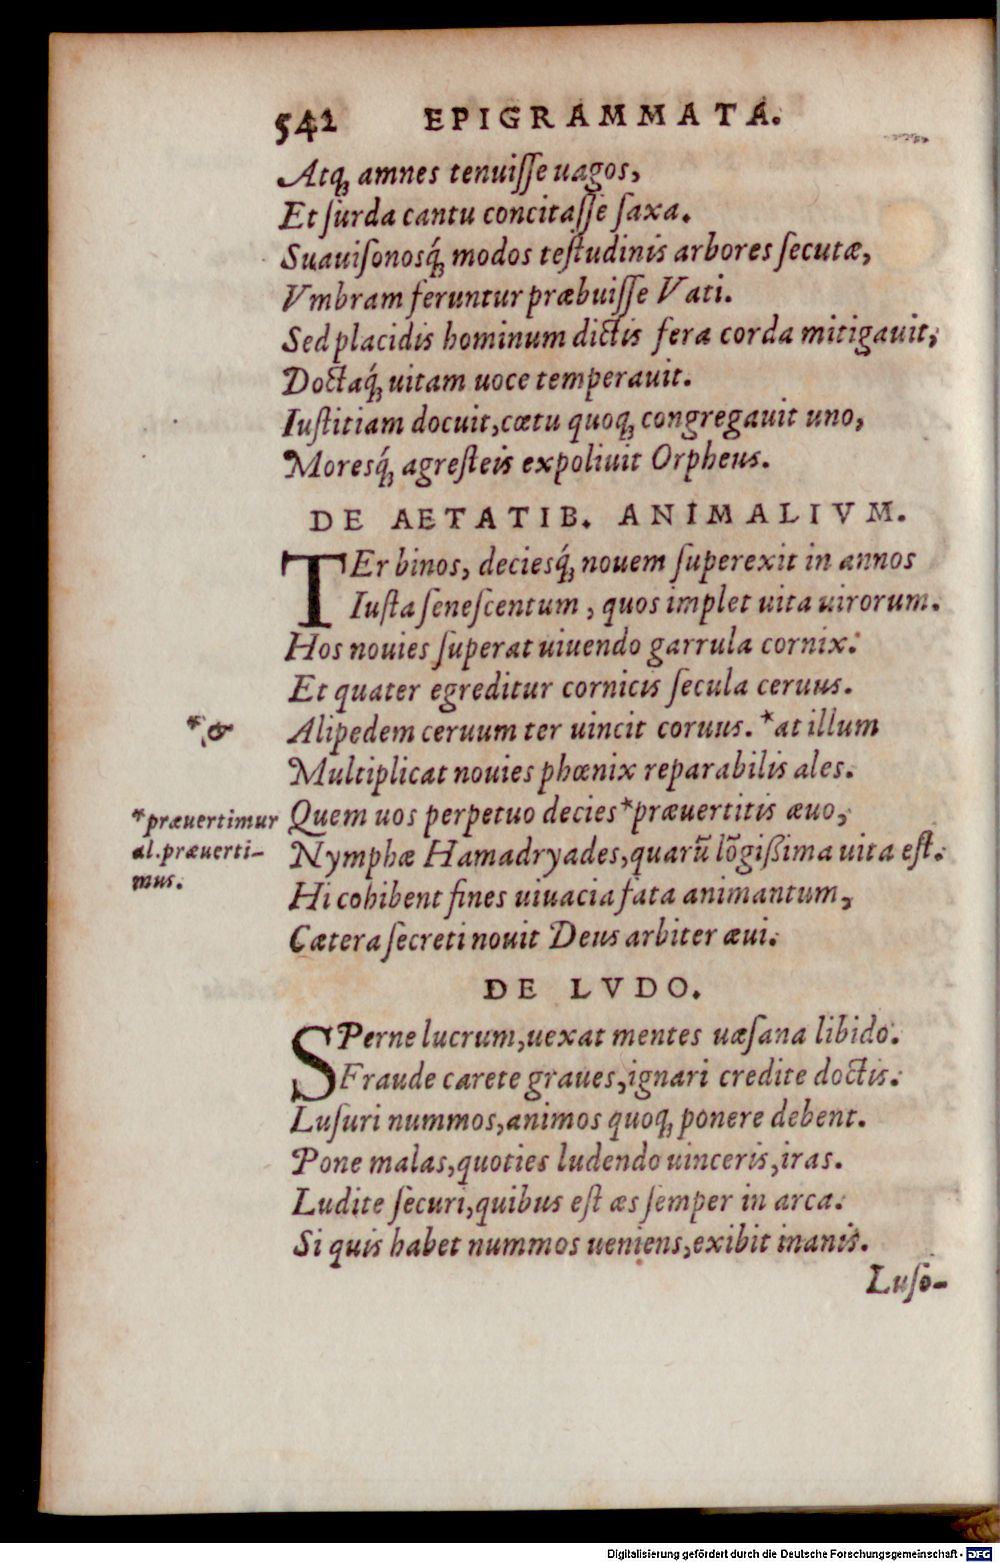 542 EPIGRAMMATA.
Atq; amnes tenuiſſe uagos,
Et ſurda cantu concitaſſe ſaxa.
Suauiſonosq́; modos teſtudinis arbores ſecutæ,
Vmbram feruntur præbuiſſe Vati.
Sed placidis hominum dictis fera corda mitigauit,
Doctaq́; uitam uoce temperauit.
Iuſtitiam docuit, cœtu quoq; congregauit uno,
Moresq́; agreſteis expoliuit Orpheus.
DE AETATIB. ANIMALIVM.
TEr binos, deciesq́; nouem ſuperexit in annos
Iuſta ſeneſcentum, quos implet uita uirorum.
Hos nouies ſuperat uiuendo garrula cornix.
Et quater egreditur cornicis ſecula ceruus.
*& Alipedem ceruum ter uincit coruus. *at illum
Multiplicat nouies phœnix reparabilis ales.
*præuertimur Quem uos perpetuo decies *præuertitis æuo,
al. præuerti- Nymphæ Hamadryades, quarũ lõgißima uita eſt.
mus. Hi cohibent fines uiuacia fata animantum,
Cætera ſecreti nouit Deus arbiter æui.
DE LVDO.
SPerne lucrum, uexat mentes uæſana libido.
Fraude carete graues, ignari credite doctis.
Luſuri nummos, animos quoq; ponere debent.
Pone malas, quoties ludendo uinceris, iras.
Ludite ſecuri, quibus eſt æs ſemper in arca.
Si quis habet nummos ueniens, exibit inanis.
Luſo-
Digitalisierung gefördert durch die Deutsche Forschungsgemeinschaft - DFG